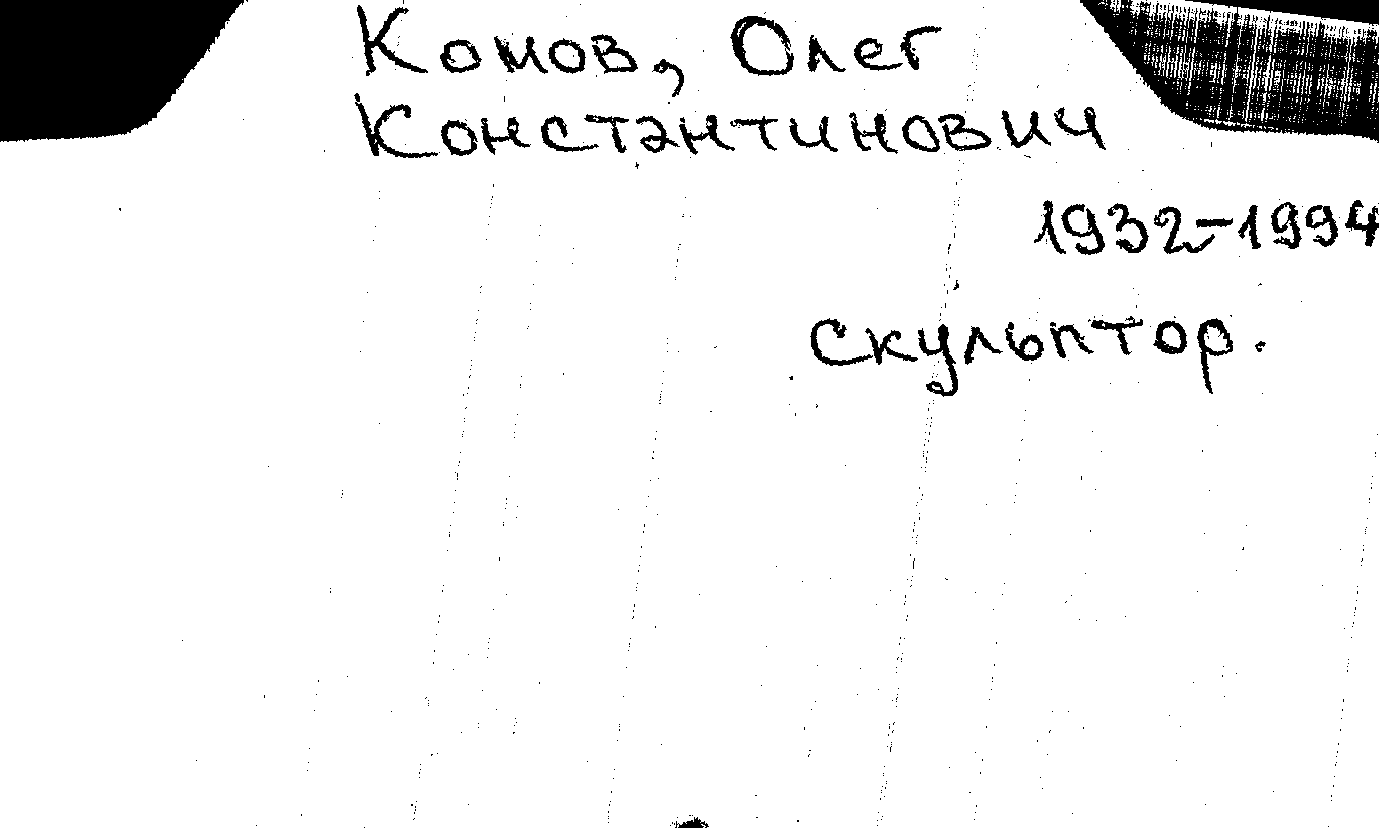 Комов, Олег
Константинович
1932-1994
скульптор.